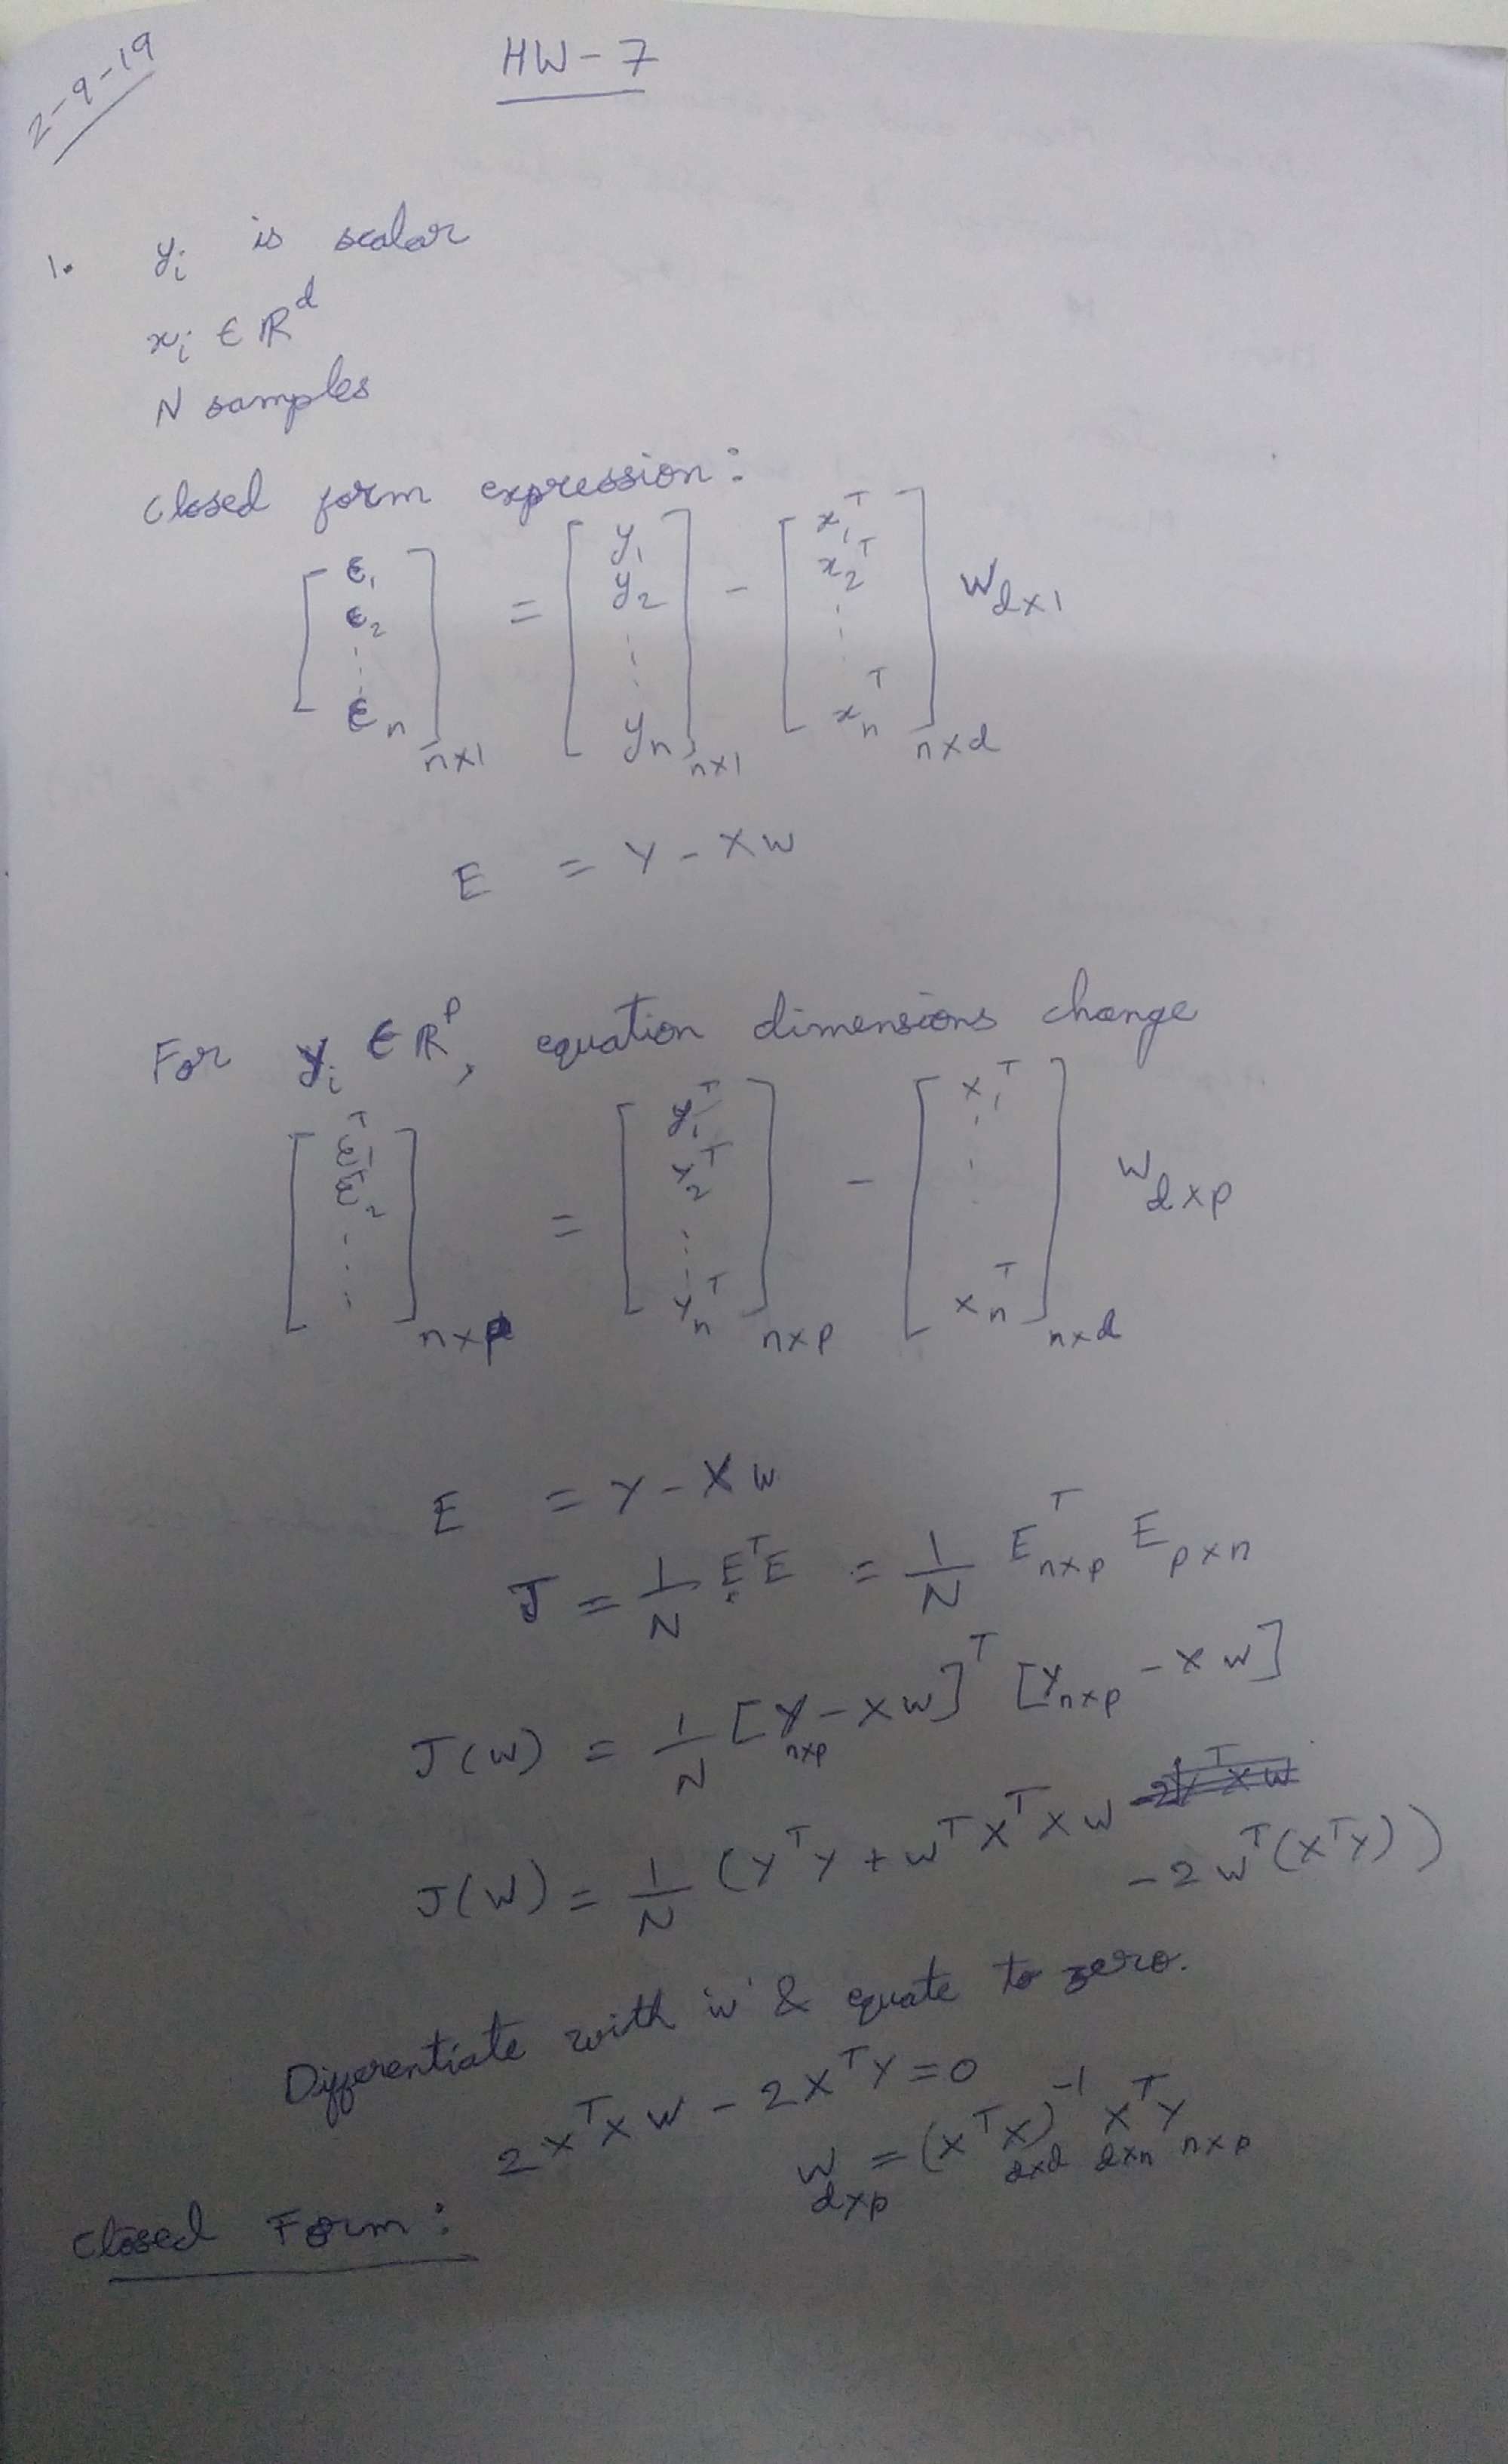 2-9-19
HW-7
1. yᵢ is scalar
xᵢ ∈ ℝᵈ
N samples
Closed form expression:
[ϵ₁ ϵ₂ ⋮ ϵₙ]ₙₓ₁ = [y₁ y₂ ⋮ yₙ]ₙₓ₁ - [x₁ᵀ x₂ᵀ ⋮ xₙᵀ] n×d W d×1
E = Y - XW
For yᵢ ∈ ℝᵖ, equation dimensions change
[ε₁ᵀ ε₂ᵀ ⋮] n×p = [y₁ᵀ y₂ᵀ ⋮ yₙᵀ] n×p - [x₁ᵀ ⋮ xₙᵀ] n×d W d×p
E = Y - XW
J = 1/N EᵀE = 1/N Eᵀ n×p E p×n
J(W) = 1/N [Y n×p - XW]ᵀ [Y n×p - XW]
J(W) = 1/N (YᵀY + WᵀXᵀXW - 2Wᵀ(XᵀY))
Differentiate with 'w' & equate to zero.
2XᵀXW - 2XᵀY = 0
Closed Form: W d×p = (XᵀX)⁻¹ d×d Xᵀ d×n Y n×p